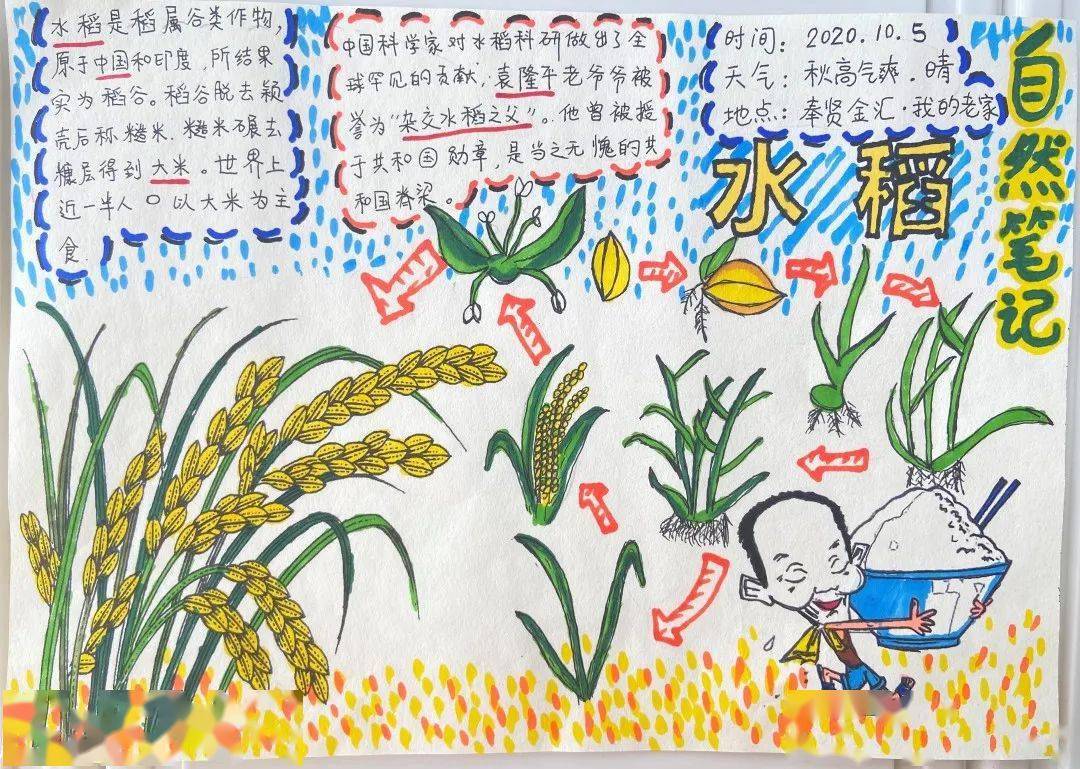 水稻是稻属谷类作物,
原于中国和印度,所结果
实为稻谷。稻谷脱去颖
壳后称糙米,糙米碾去
糠层得到大米。世界上
近一半人口以大米为主
食.
中国科学家对水稻科研做出了全
球罕见的贡献,袁隆平老爷爷被
誉为“杂交水稻之父”。他曾被授
于共和国勋章,是当之无愧的共
和国脊梁。
时间:2020.10.5
天气:秋高气爽.晴
地点:奉贤金汇·我的老家
水稻
自然笔记